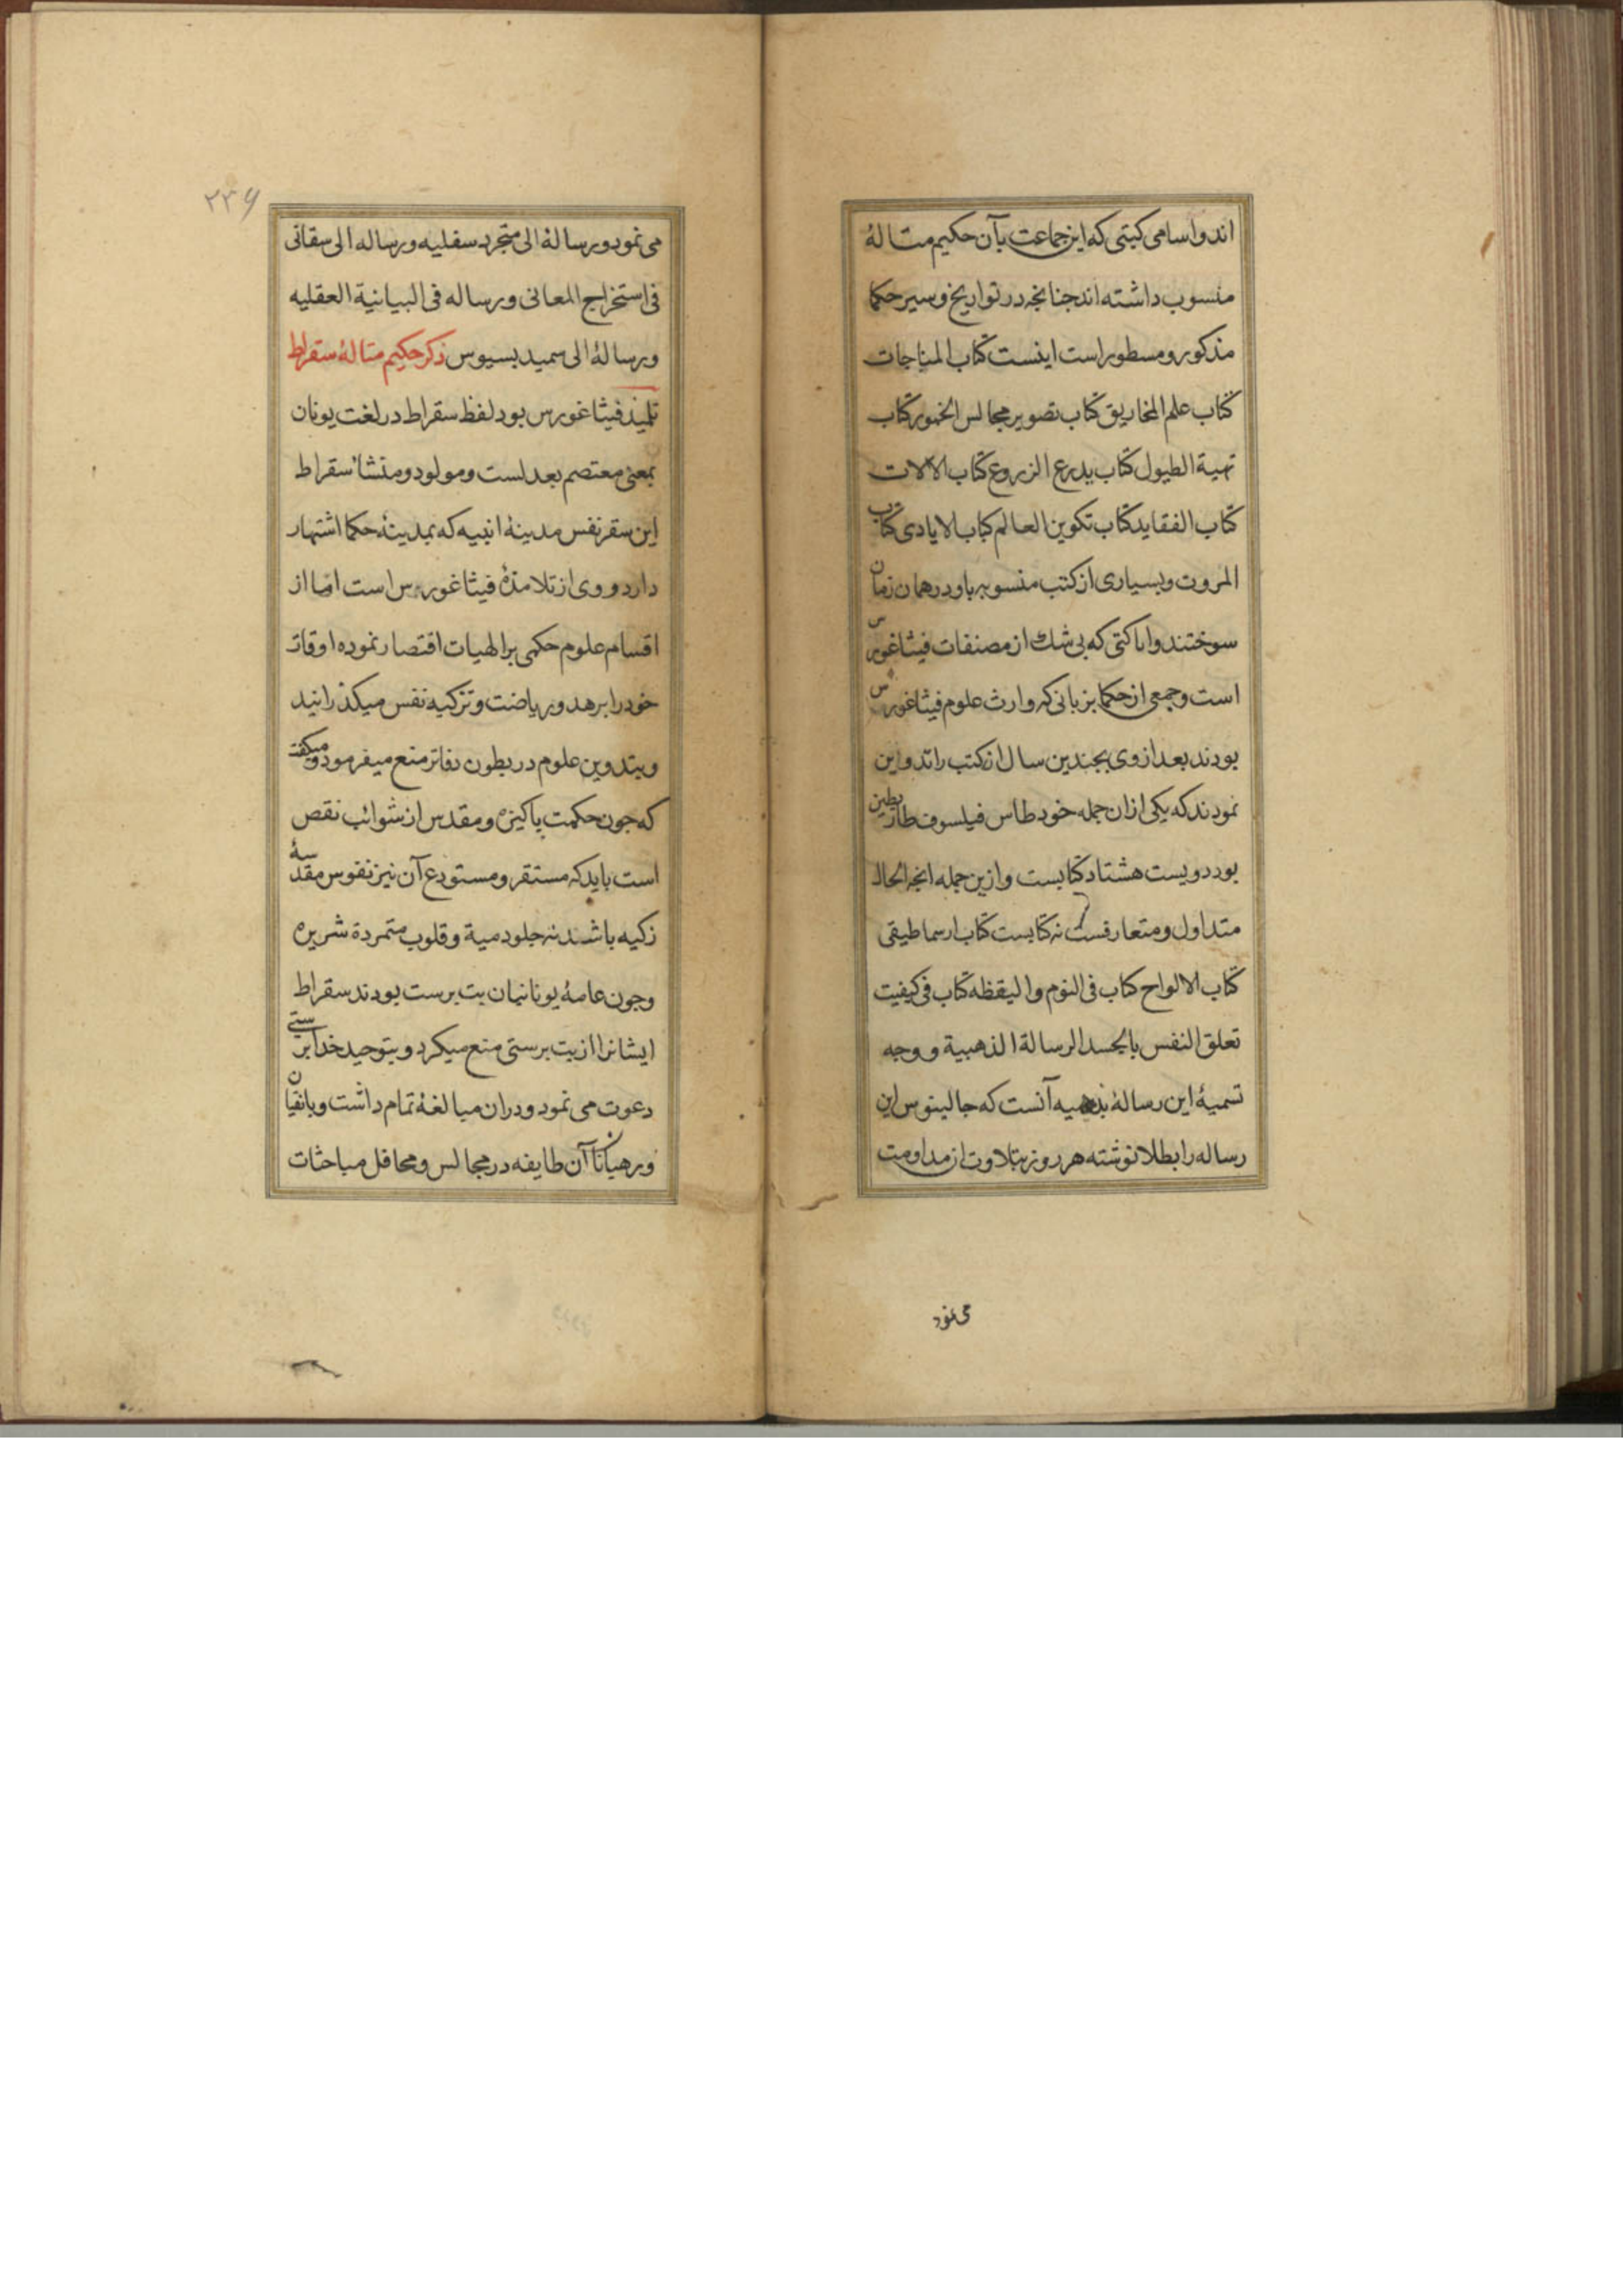 اند و اسامی کتبی که این جماعت بآن حکیم متاله
منسوب داشته اند جنانجه در تواریخ و سیر حکما
مذکور و مسطور است اینست کتاب المناجات
کتاب علم المخاریق کتاب تصویر مجالس الخمور کتاب
تهیة الطبول کتاب بدرع الزروع کتاب الالات
کتاب القفاید کتاب تکوین العالم کتاب الایادی کتاب
المروت و بسیاری از کتب منسوبه باو در همان زمان
سوختند و اما کتبی که بی شک از مصنفات فیثاغورس
است و جمعی از حکما بزبانی که وارث علوم فیثاغورس
بودند بعد از وی بجندین سال از کتب را تدوین
نمودند که یکی از ان جمله خود طاس فیلسوف طارنطین
بود دویست هشتاد کتابست و ازین جمله انجه الحال
متداول و متعارفست نه کتابست کتاب ارسماطیقی
کتاب الالواح کتاب فی النوم و الیقظه کتاب فی کیفیت
تعلق النفس بالجسد الرسالة الذهبیة و وجه
تسمیهٔ این رسالهٔ بذهبیه آنست که جالینوس این
رساله را بطلا نوشته هر روز بتلاوت ازمداومت
می نمود
۲۳۶
می نمود و رسالهٔ الی متجرد سقلیه و رساله الی سقانی
فی استخراج المعانی و رساله فی البیانیة العقلیه
و رسالهٔ الی سمیدیسیوس ذکر حکیم متالهٔ سقراط
تلمیذ فیثاغورس بود لفظ سقراط در لغت یونان
بمعنی معتصم بعدلست و مولود و منشا سقراط
این سقر نفس مدینهٔ اثنیه که بمدینهٔ حکما اشتهار
دارد و وی از تلامذهٔ فیثاغورس است اما از
اقسام علوم حکمی بر الهیات اقتصار نموده اوقات
خود را بزهد و ریاضت و تزکیه نفس میکذرانید
و بتدوین علوم در بطون دفاتر منع میفرمود و میکفت
که جون حکمت باکیزه و مقدس از شوائب نقص
است باید که مستقر و مستودع آن نیز نفوس مقدسهٔ
زکیه باشد نه جلود میة و قلوب متمردة شریره
و جون عامهٔ یونانیان بت برست بودند سقراط
ایشانرا از بت برستی منع میکرد و بتوحید خدا برستی
دعوت می نمود و دران مبالغهٔ تمام داشت و با نقیان
و رهبانان آن طایفه در مجالس و محافل مباحثات